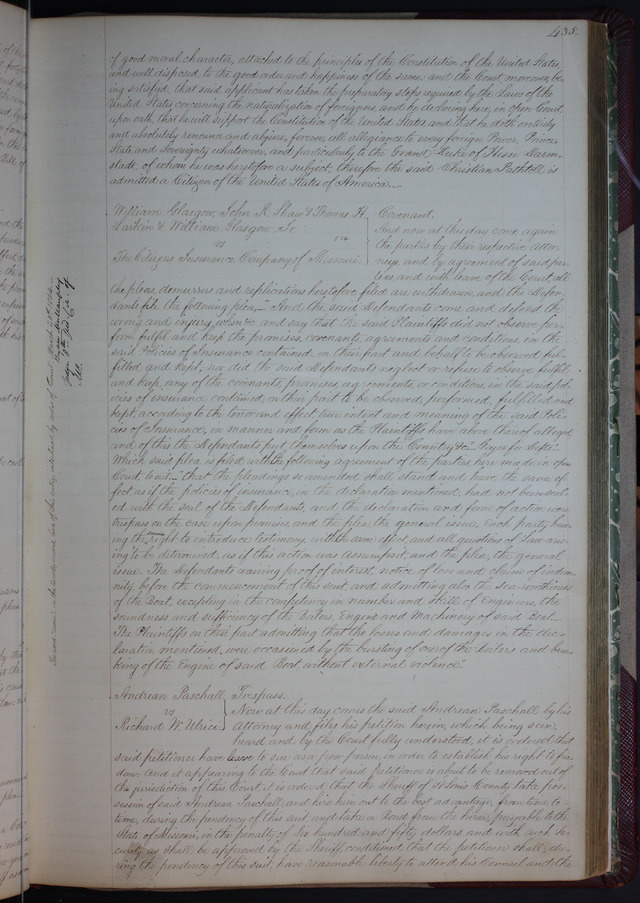 435.
of good moral character, attached to the principles of the Constitution of the United States
and well disposed to the good order and happiness of the same, and the Court moreover be-
ing satisfied, that said applicant has taken the preparatory steps required by the Laws of the
United States concerning the naturalization of foreigners, and he declaring here, in open Court,
upon oath, that he will support the Constitution of the United States, and that he doth entirely
and absolutely renounce and abjure, forever, all allegiance to every foreign Power, Prince,
State and Sovereignty whatsoever, and particularly to the Grand Duke of Hesse Darm-
stadt, of whom he was heretofore a subject, therefore the said Christian is
admitted a Citizen of the United States of America.
William Glasgow, John R. Shaw & Thomas H. Covenant.
Larkin & William Glasgow, Jr. And now at this day come again
vs the parties by their respective attor-
The Citizens Insurance Company of Missouri. neys, and by agreement of said par-
ties, and with leave of the Court, all
the pleas, demurrers and replications heretofore filed are withdrawn, and the Defen-
dants file the following plea, "And the said Defendants come and defend the
wrong and injury, when &c and say that the said Plaintiffs did not observe, per-
form, fulfil and keep the promises, covenants, agreements and conditions, in the
said Policies of Insurance contained, on their part and behalf to be observed ful-
filled and kept; nor did the said Defendants neglect or refuse to observe, fulfil,
and keep, any of the covenants, promises, agreements or conditions, in the said pol-
icies of insurance contained, on their part to be observed, performed, fulfilled and
kept, according to the tenor and effect, true intent and meaning of the said Poli-
cies of Insurance, in manner and form as the Plaintiffs have above thereof alleged,
and of this the Defendants put themselves upon the Country &c" Geyer for Defts.
Which said plea is filed with the following agreement of the parties, here made in open
Court, to wit, "that the pleadings so amended shall stand and have the same ef-
fect as if the policies of insurance, in the declaration mentioned, had not been seal-
ed with the seal of the Defendants, and, the declaration and form of action were
trespass on the case upon promises, and the plea, the general issue, Each party hav-
ing the same Right to introduce testimony, with the same effect, and all questions of Law aris-
ing to be determined, as if this action was Assumpsit, and the plea, the general
issue. The Defendants waiving proof of interest, notice of loss and claim of indem-
nity, before the commencement of this suit, and admitting also the sea-worthiness
of the Boat, excepting in the competency in number and skill of Engineers, the
soundness and sufficiency of the Boilers, Engine and Machinery of said Boat.
The Plaintiffs on their part admitting that the losses and damages in the dec-
laration mentioned, were occasioned by the bursting of one of the Boilers and brea-
king of the Engine of said Boat, without external violence."
Andrian Paschall, Trespass.
vs Now at this day comes the said Andrian Paschall, by his
Richard W. Ulrici. Attorney and files his petition herein, which being seen,
heard and by the Court fully understood, it is ordered that
said petitioner have leave to sue as a poor person, in order to establish his right to free-
dom; And it appearing to the Court that said petitioner is about to be removed out of
the jurisdiction of this Court, it is ordered that the Sheriff of St. Louis County take pos-
session of said Andrian Paschall, and hire him out to the best advantage, from time to
time, during the pendency of this suit and take a Bond from the hirer, payable to the
State of Missouri, in the penalty of Six hundred and fifty dollars and with such se-
curity as shall be approved by the Sheriff, conditioned that the petitioner shall, du-
ring the pendency of this suit, have reasonable liberty to attend his Counsel and the